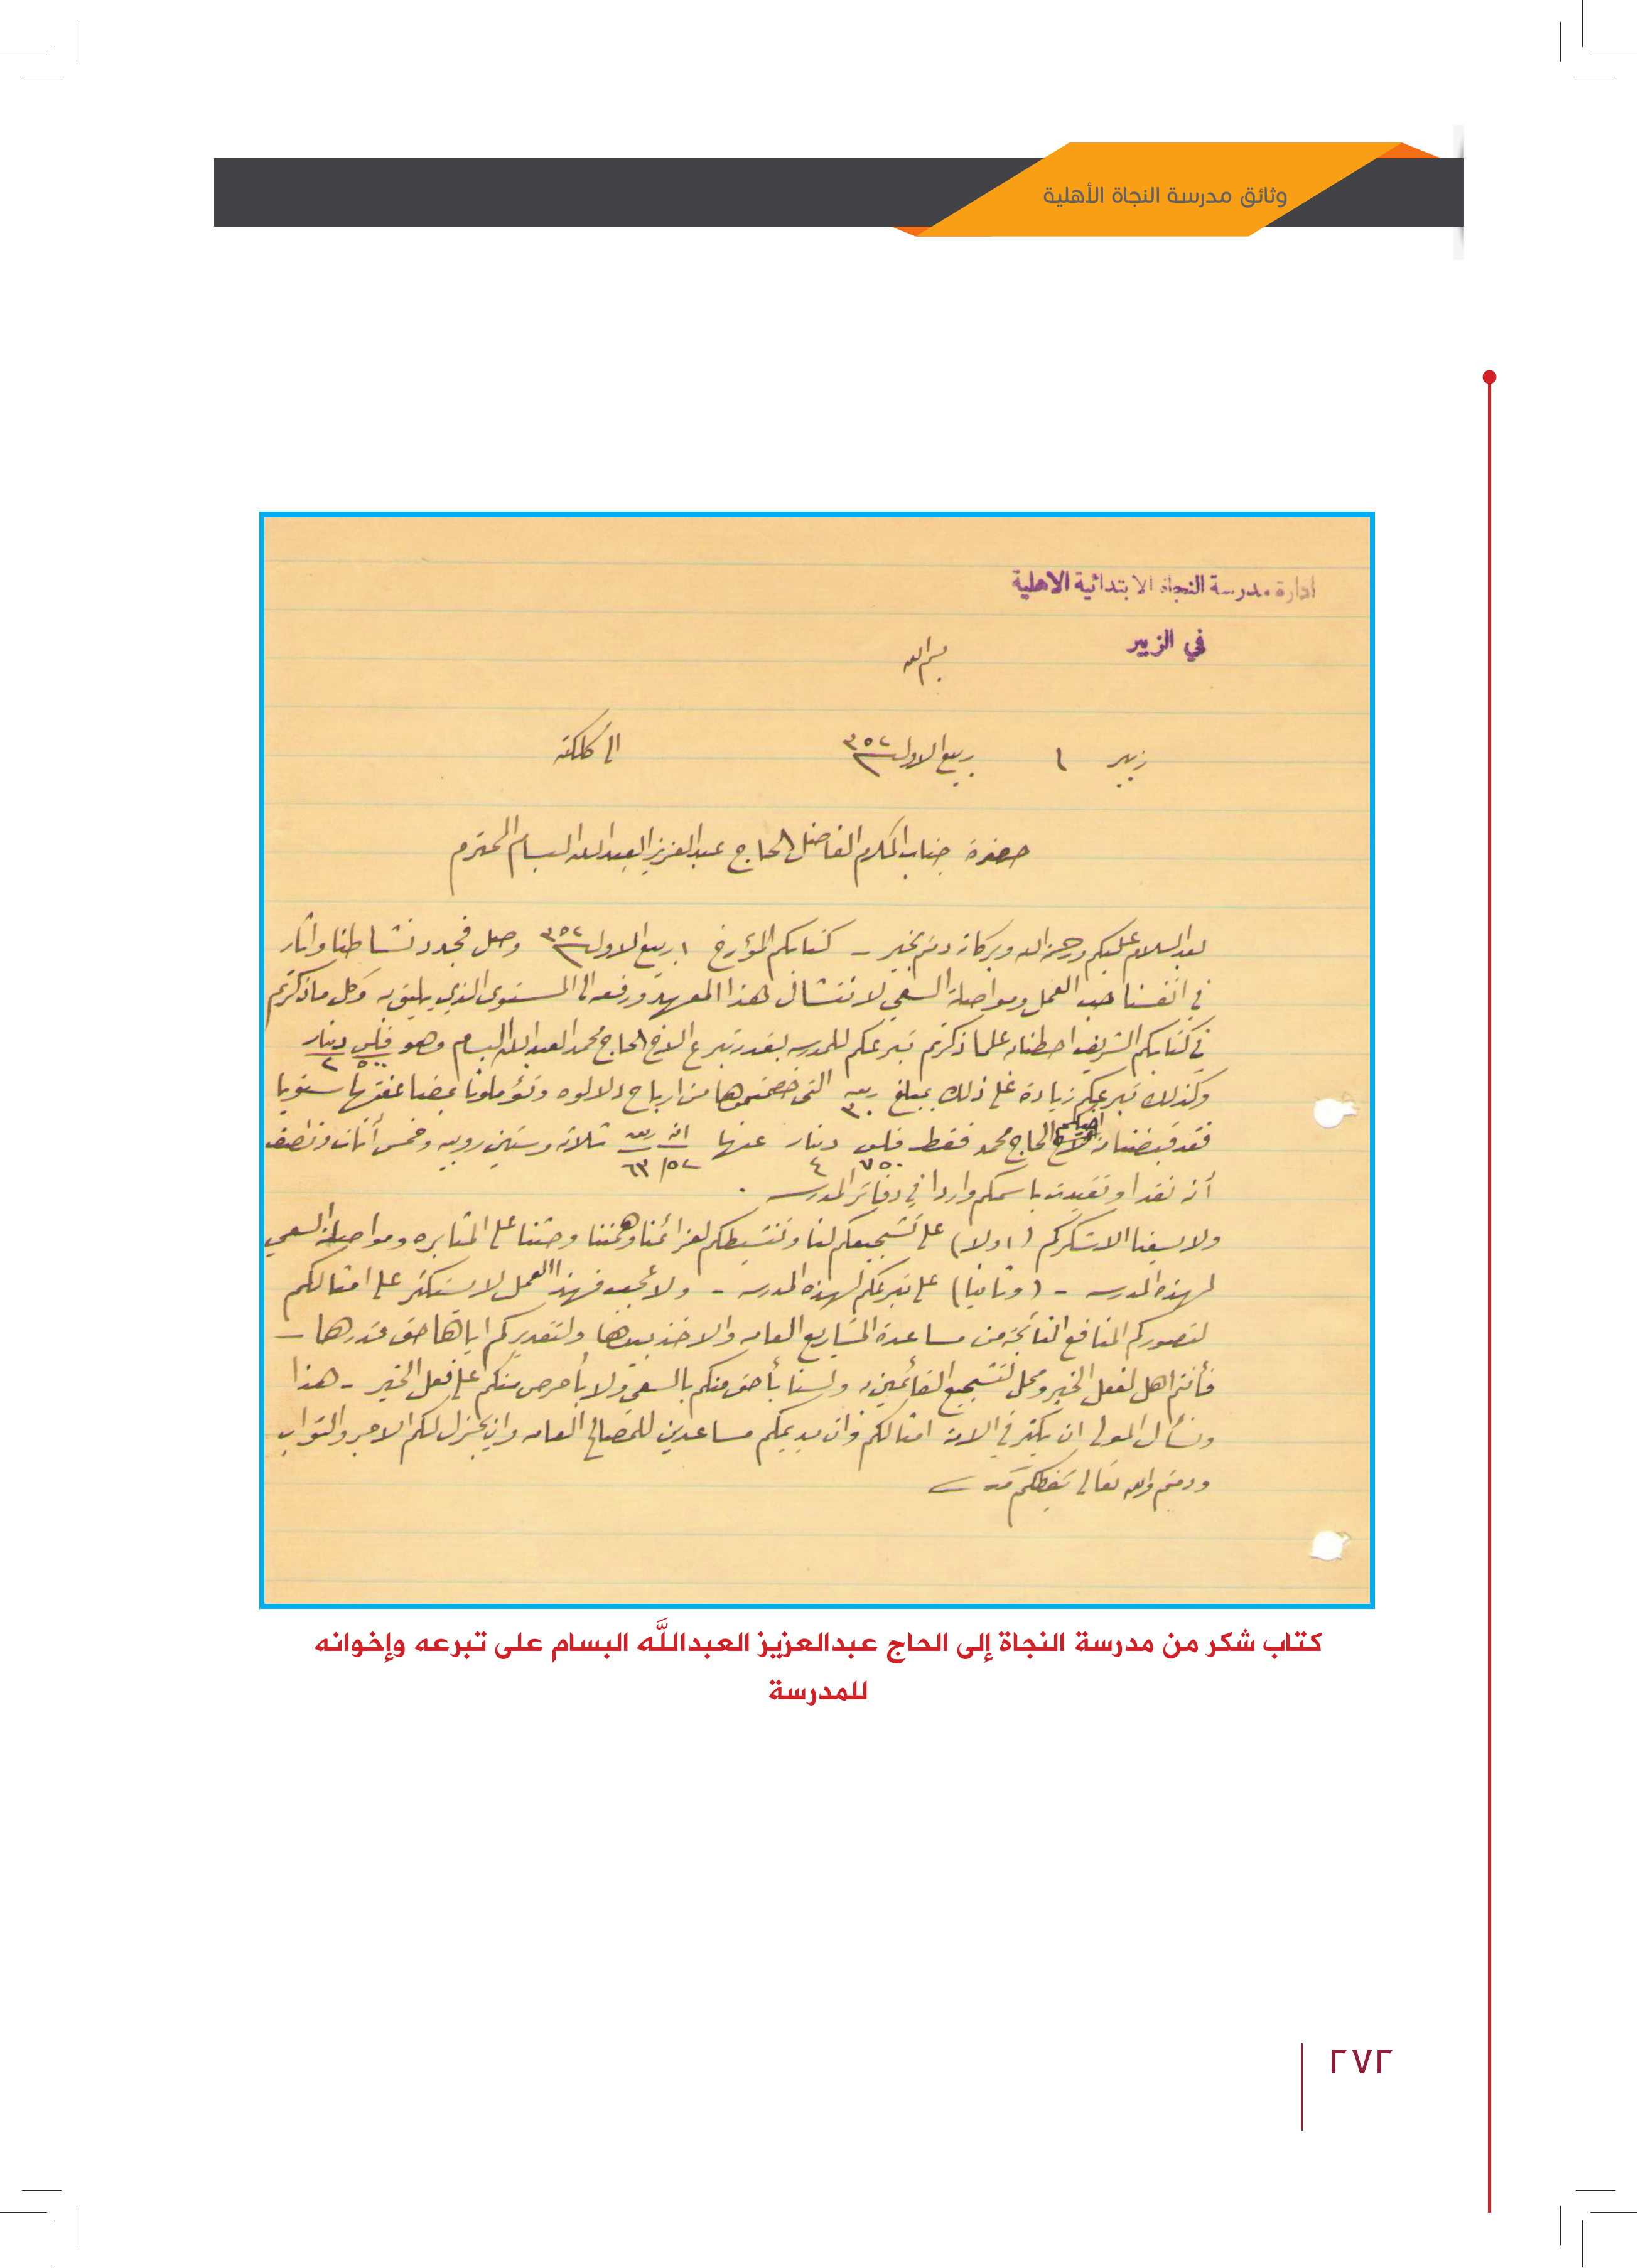 وثائق مدرسة النجاة الأهلية
ادارة مدرسة النجاة الابتدائية الاهلية
في الزبير
بسم الله
زبير ١ ربيع الاول ٣٥٢ الى كلكته
حضرة جناب المكرم الفاضل الحاج عبدالعزيز العبدالله البسام المحترم
بعد السلام عليكم ورحمة الله وبركاته دمتم بخير - كتابكم المؤرخ ١ ربيع الاول ٣٥٢ وصل فجدد نشاطنا وأثار
في انفسنا حب العمل ومواصلة السعي لانتشال هذا المعهد ورفعه الى المستوى الذي يليق به وكل ما ذكرتم
في كتابكم الشريف احطنا به علما ذكرتم تبرعكم للمدرسه بقدر تبرع الاخ الحاج محمد العبدالله البسام وهو فلس دينار
٥٠٠ ٢
وكذلك تبرعكم زيادة على ذلك بمبلغ ربيه ٣٠ التي خصمتموها من ارباح دلالوه سنويا
فقد قبضنا من اخيكم الحاج محمد فقط فلس دينار عنها انه ربيه ثلاثه وستين روبيه وخمس أنات ونصف
٧٥٠ ٤ ٦٣/٥٢
أنه نقدا وتقيدت باسمكم واردا في دفاتر المدرسه .
ولا يسعنا الا شكركم (اولا) على تشجيعكم لنا وتنشيطكم لعزائمنا وهممنا وحثنا على المثابره ومواصلة السعي
لهذه المدرسه - (وثانيا) على تبرعكم لهذه المدرسه - ولا عجب فهذا العمل لا يستكثر على امثالكم
لتصوركم المنافع الناتجة من مساعدة المشاريع العامه والاخذ بيدها ولتقديركم اياها حق قدرها -
فأنتم اهل لفعل الخير ومحل لتشجيع القائمين به ولسنا بأحق منكم بالسعي ولا بأحرص منكم على فعل الخير - هذا
ونسأل المولى ان يكثر في الامة امثالكم وان يديمكم مساعدين للمصالح العامه وان يجزل لكم الاجر والثواب
ودمتم والله تعالى يحفظكم
كتاب شكر من مدرسة النجاة إلى الحاج عبدالعزيز العبداللَّه البسام على تبرعه وإخوانه
للمدرسة
٢٧٢